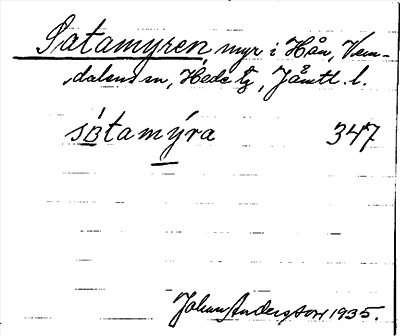 Satamyren myr i Hån, Vem-
dalens sn, Hede tg, Jämtl. l.
sàtamýra 347
Johan Andersson 1935.